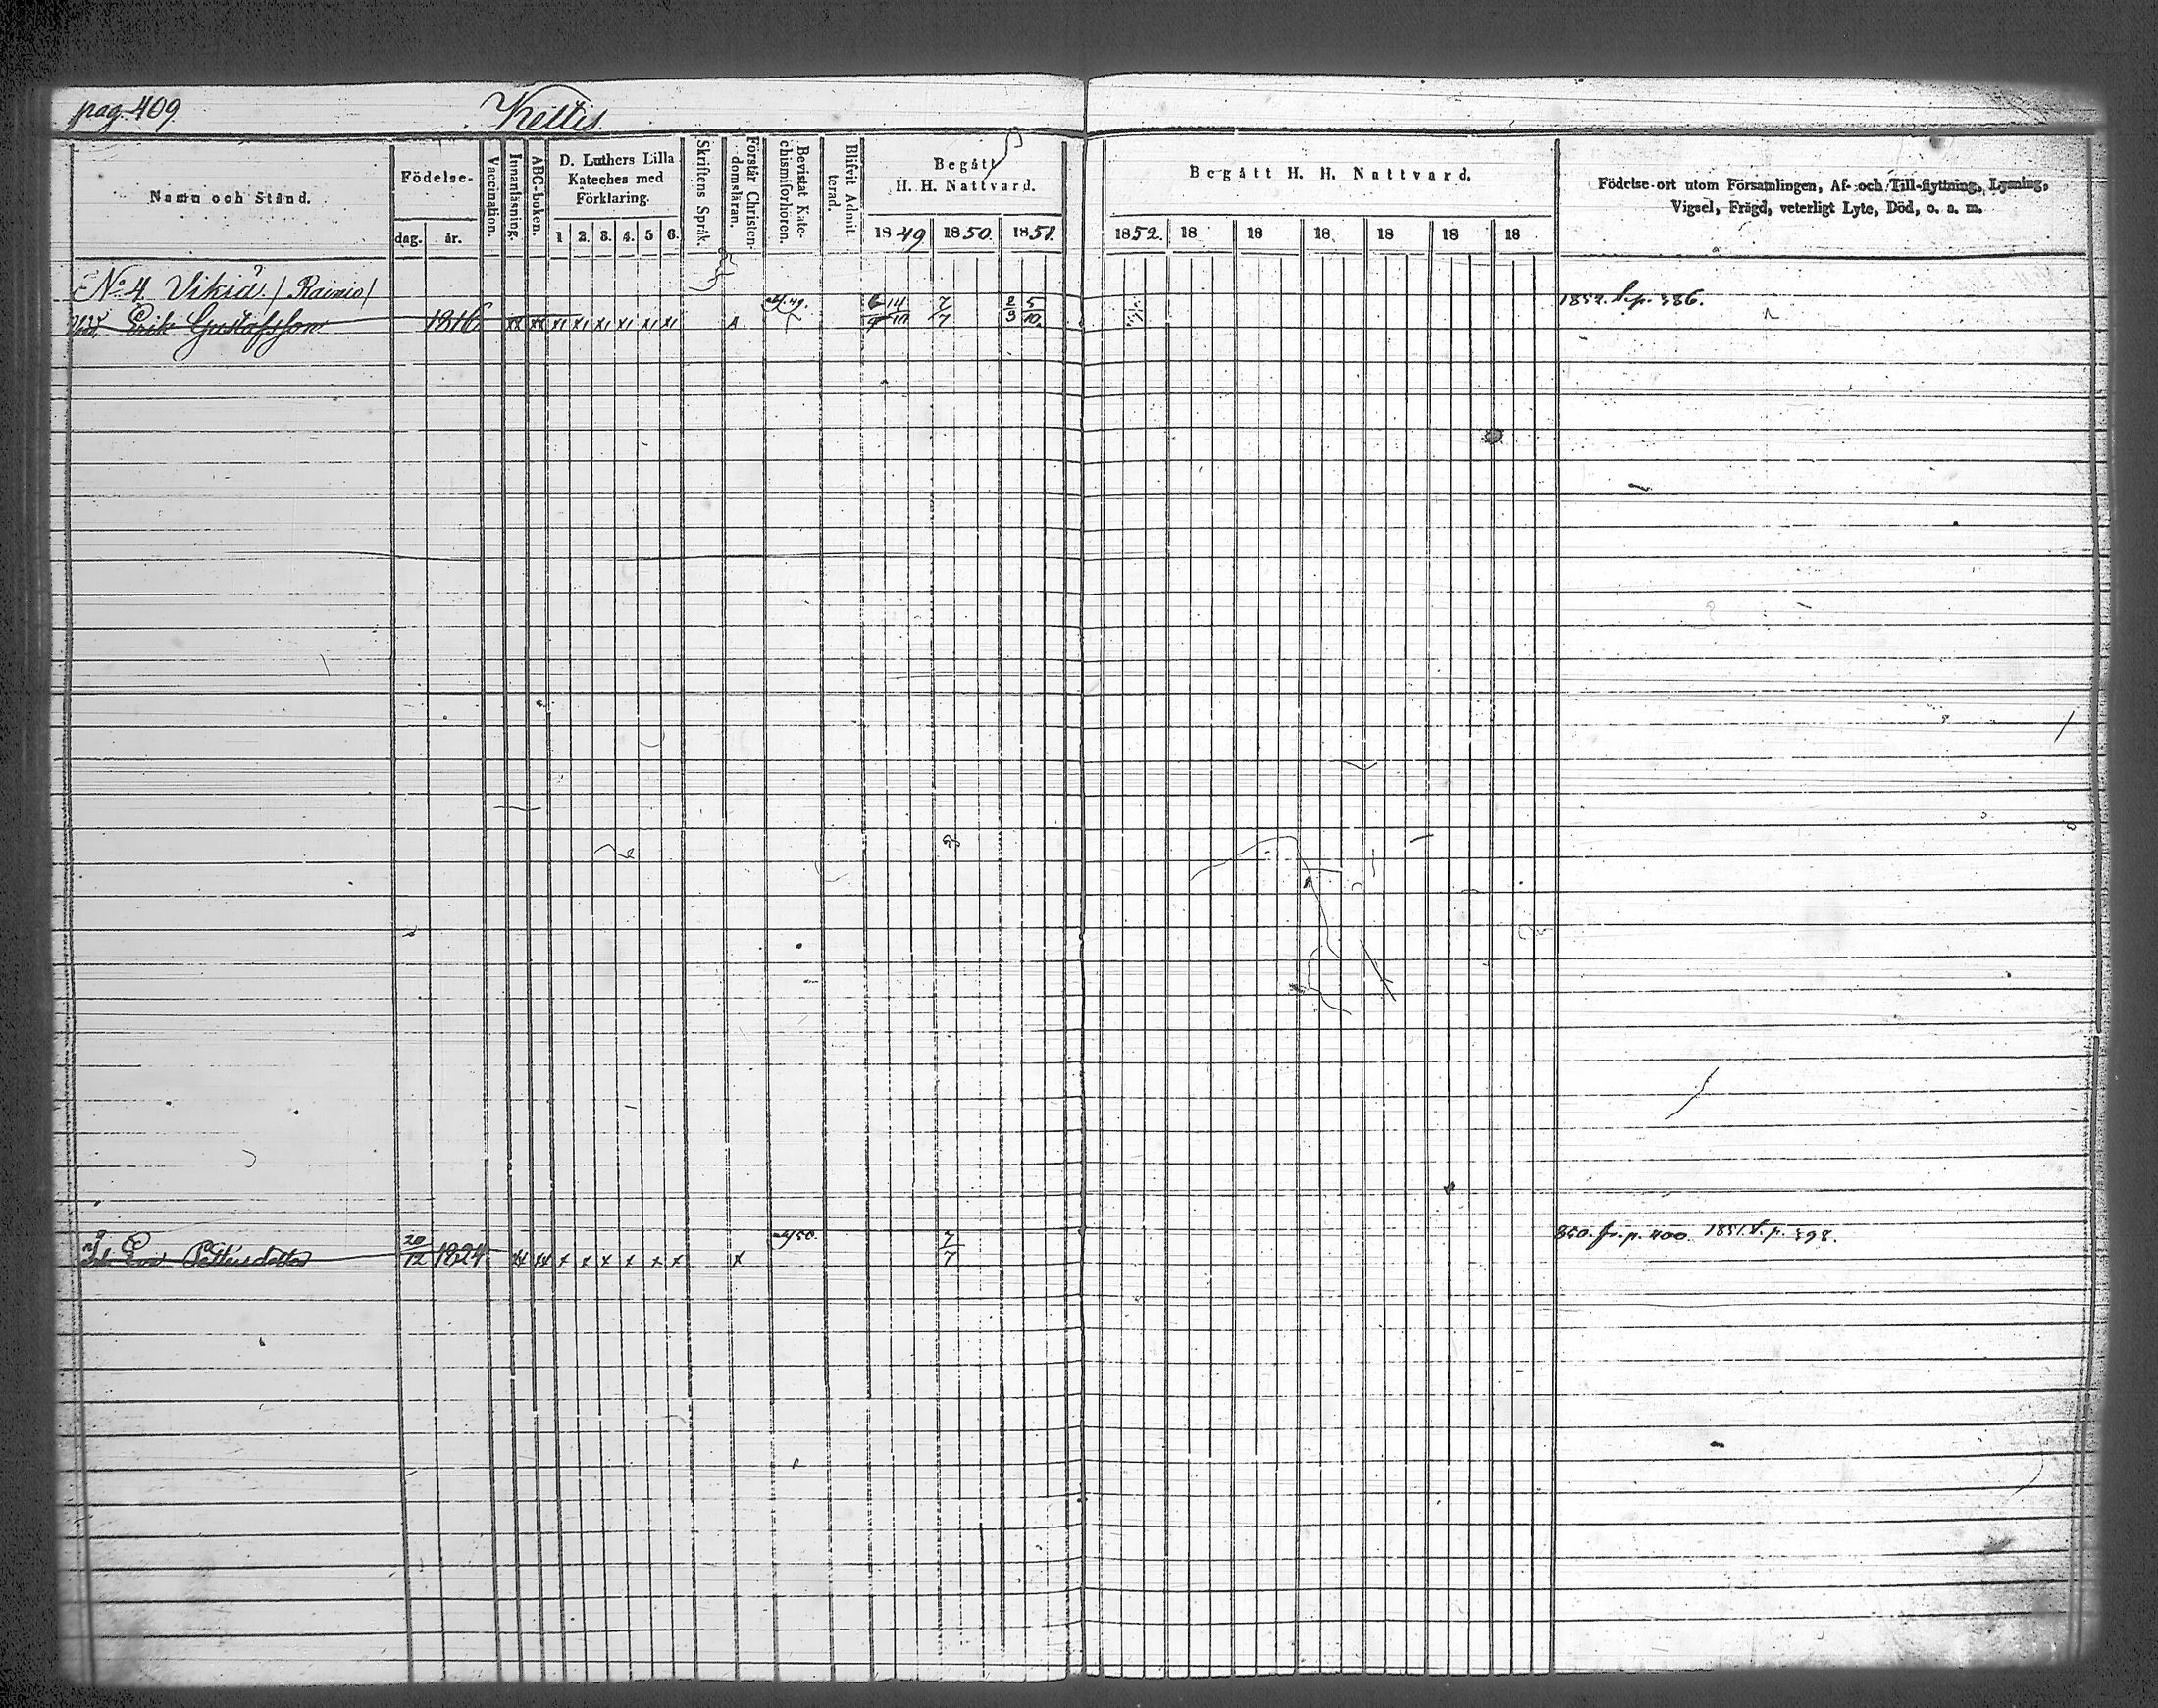 pag. 409 Keltis.
Namn och Stånd. Födelse- dag. år. Vaccination. Innanläsning. ABC-boken. D. Luthers Lilla Kateches med Förklaring. 1 2. 3. 4. 5 6. Skriftens Språk. Förstår Christendomsläran. Bevistat Katechismiförhören. Blifvit Admitterad. Begått H. H. Nattvard. 1849 1850. 1851.
Begått H. H. Nattvard. 1852. 18 18 18 18 18 18
Födelse-ort utom Församlingen, Af- och Till-flyttning, Lysning, Vigsel, Frägd, veterligt Lyte, Död, o. s. m.
No 4 Vikiä. / Rainio /
Erik Gustafsson 1816 14/10 7/7 2/3 5/10 p. 386.
Eva Pettersdotter 20/12 1824 x x x x x x x 7/7 850. fr. p. 400. 1851. p. 398.